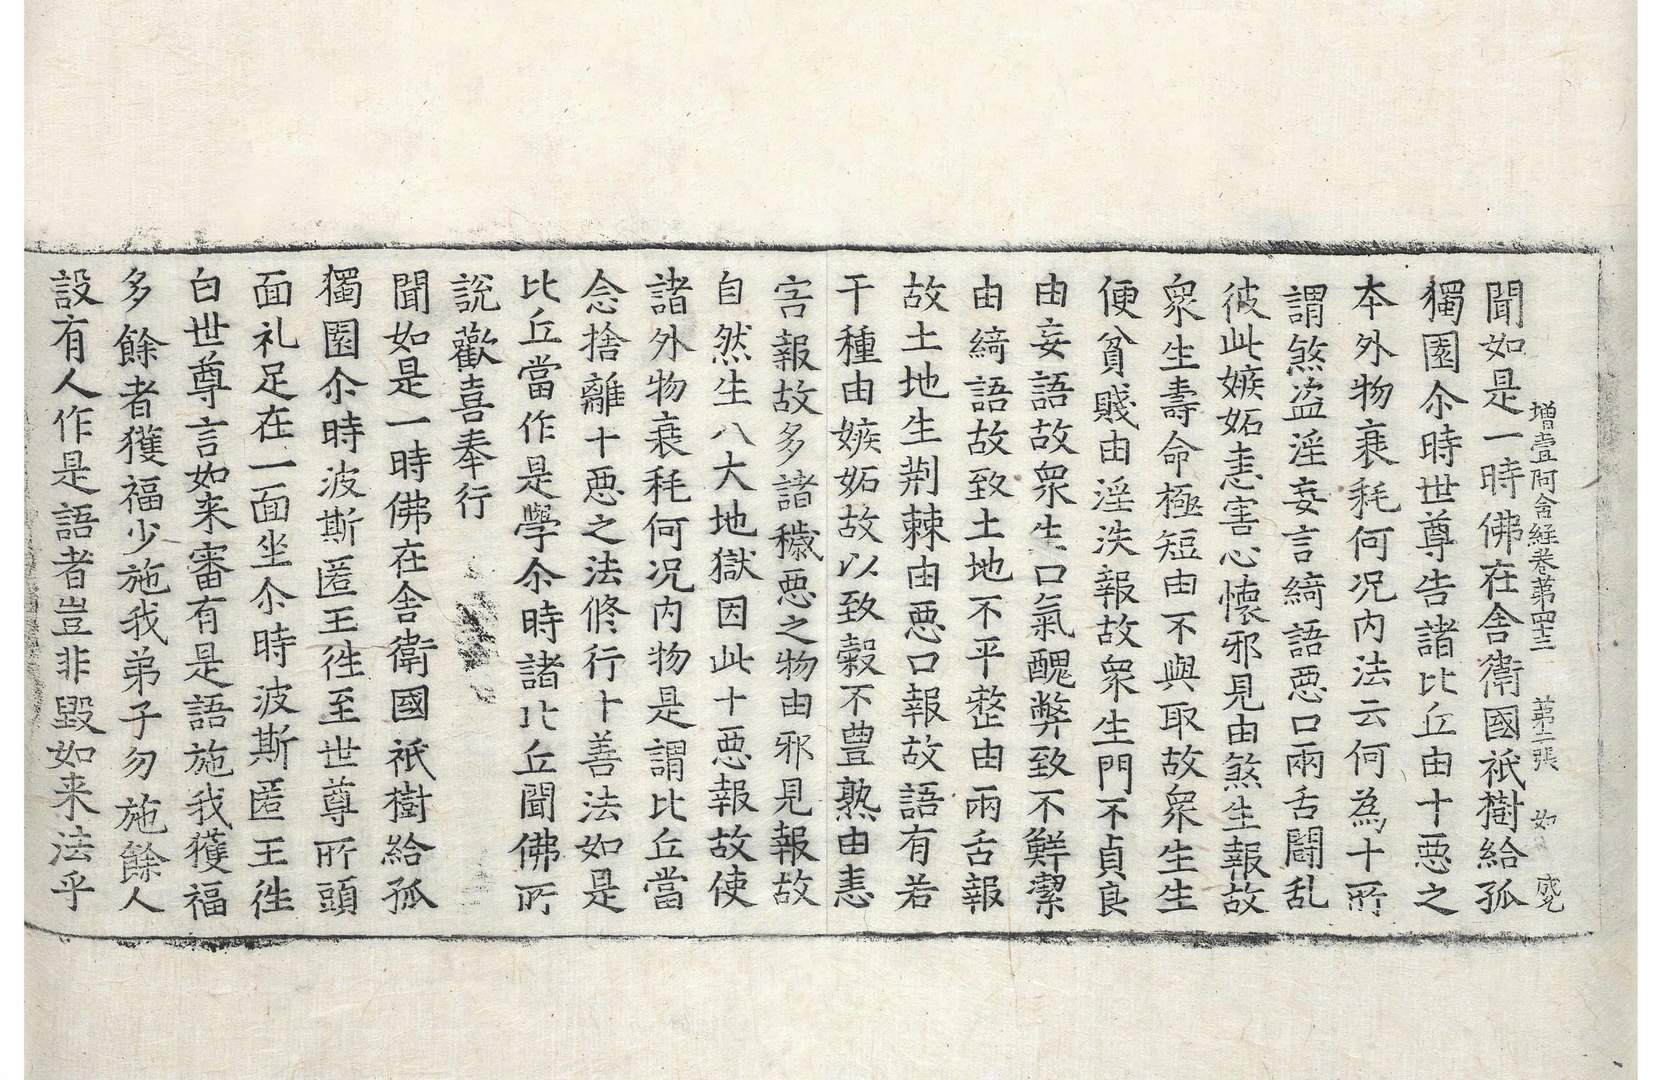 增壹阿含経卷第四十三 第二張 盛
聞如是一時佛在舎衛國祇樹給孤
獨園尒時世尊告諸比丘由十悪之
本外物衰耗何况内法云何為十所
謂煞盗淫妄言綺語悪口兩舌鬪乱
彼此嫉妬恚害心懷邪見由煞生報故
衆生壽命極短由不與取故衆生生
便貧賤由淫泆報故衆生門不貞良
由妄語故衆生口氣醜弊致不鮮潔
由綺語故致土地不平整由兩舌報
故土地生荆棘由悪口報故語有若
干種由嫉妬故以致穀不豊熟由恚
害報故多諸穢悪之物由邪見報故
自然生八大地獄因此十悪報故使
諸外物衰耗何况内物是謂比丘當
念捨離十悪之法修行十善法如是
比丘當作是學尒時諸比丘聞佛所
說歡喜奉行
聞如是一時佛在舎衛國祇樹給孤
獨園尒時波斯匿王徃至世尊所頭
面礼足在一面坐尒時波斯匿王徃
白世尊言如来審有是語施我獲福
多餘者獲福少施我弟子勿施餘人
設有人作是語者豈非毀如来法乎